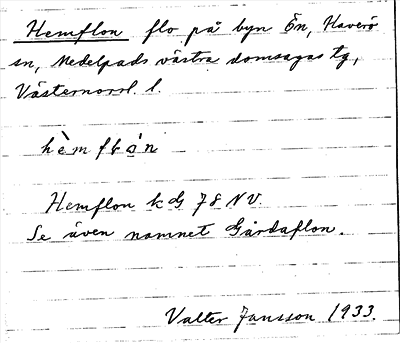 Hemflon flo på byn Ön, Haverö
sn, Medelpads västra domsagas tg,
Västernorrl. l.
Hemflon k G 78 NV.
Se även namnet Gårdaflon.
Valter Jansson 1933.